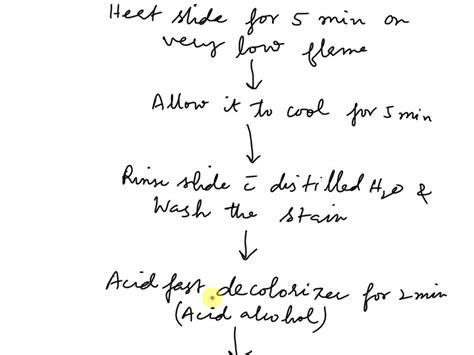 Heet slide for 5 min on
very low flame
Allow it to cool for 5 min
Rinse slide c̄ distilled H₂O &
Wash the stain
Acid fast decolorizer for 2 min
(Acid alcohol)